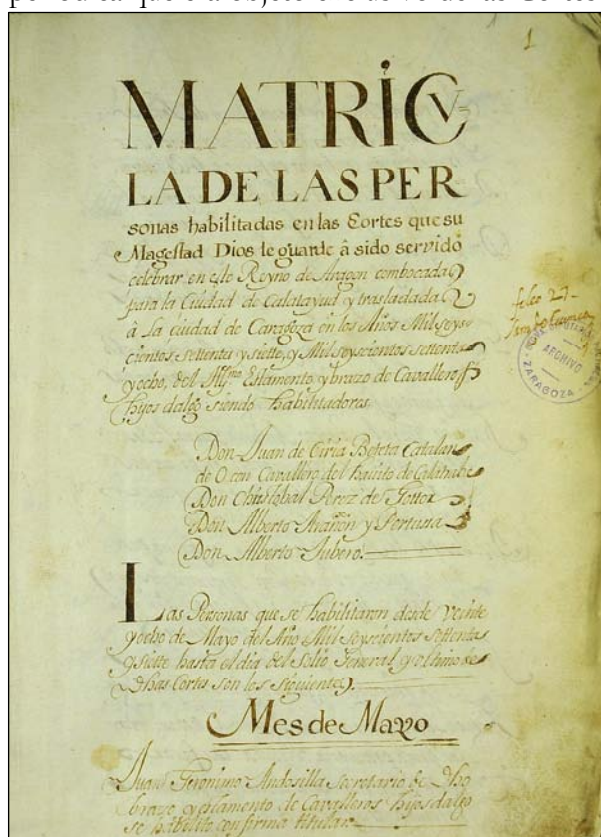 1
MATRICV=
LA DE LAS PER
sonas habilitadas en las Cortes que su
Magestad Dios le guarde â sido servido
celebrar en este Reyno de Aragon combocadas
para la Ciudad de Calatayud y trasladadas
â La ciudad de Caragoza en los Años Mil seys
cientos settenta y siette, y Mil seyscientos settenta
y ocho, del Estamento y brazo de Cavalleros
hijos dalgo siendo habilitadores.
Don Juan de Ciria Beteta Catalan
de Ocon Cavallero del havito de Calatrava
Don Christobal Perez de
Don Alberto Arañon y
Don Alberto
Las Personas que se habilitaron desde Veinte
y ocho de Mayo del Año Mil Seyscientos Settenta
y siette hasta el dia del Solio General, y vltimo de
Dhas Cortes son los siguientes.
Mes de Mayo
Juan Geronimo Andosilla Secretario de Dho
brazo y estamento de Cavalleros hijos dalgo
se habilito con firma titular
ARCHIVO
ZARAGOZA